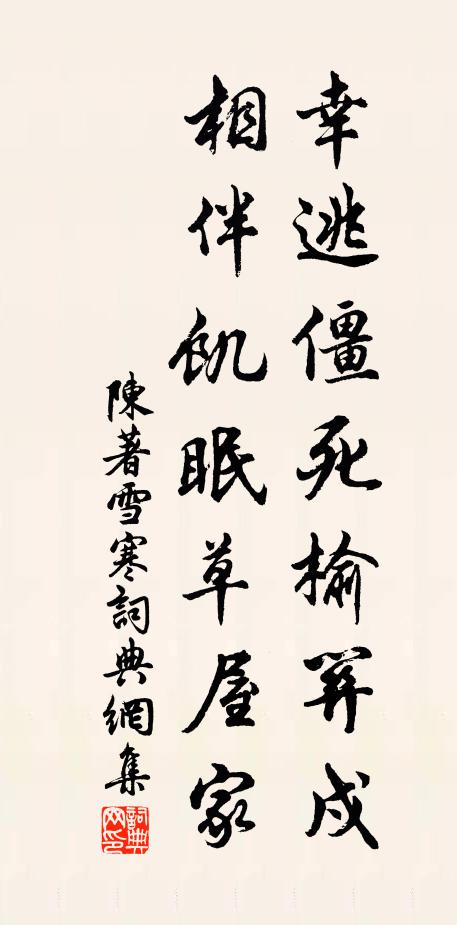 幸逃僵死榆關戍
相伴飢眠草屋家
陳著雪寒詞典網集
詞典網印